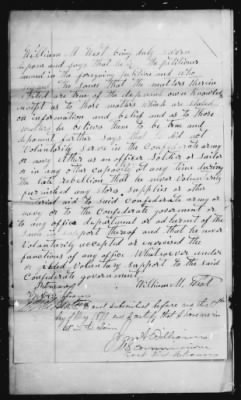 William M West being duly sworn
deposes and says that he is the petitioner
named in the foregoing petition and who
signed the same that the matters therein
stated are true of the deponent own knowledge
except as to those matters which are stated
on information and belief and as to those
matters he believes them to be true and
deponent further says that he did not
voluntarily serve in the Confederate army
or navy either as an officer soldier or sailor
or in any other capacity at any time during
the late rebellion that he never voluntarily
furnished any stores supplies or other
material aid to said Confederate army or
navy or to the Confederate government or
to any officer department or adherent of the
same in support thereof and that he never
voluntarily accepted or exercised the
functions of any office whatsoever under
or yielded voluntary support to the said
Confederate government
William M. West
Sworn to and subscribed before me this
day of May 1871 and I certify that I have no in
U S Commissioner